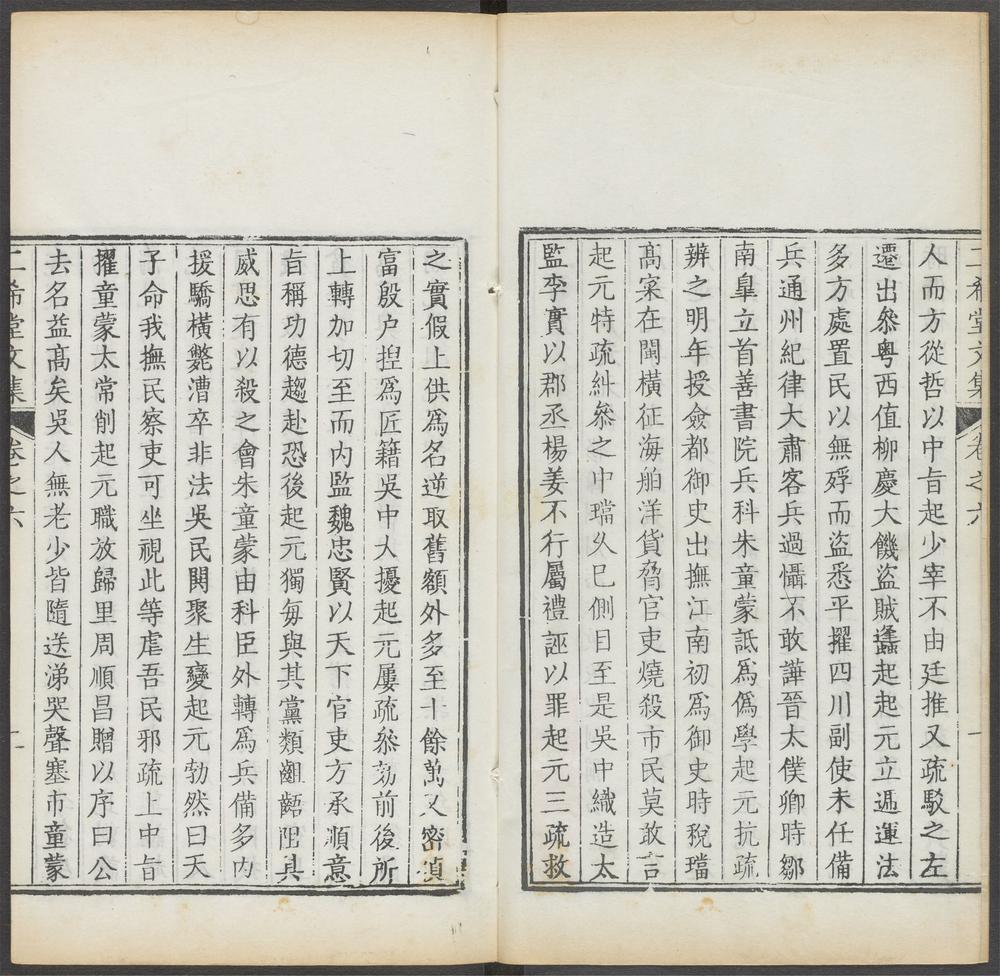 二希堂文集 卷之六 一
人而方從哲以中旨起少宰不由廷推又疏駁之左
遷出叅粤西值柳慶大饑盜賊蠭起起元立遞運法
多方處置民以無殍而盜悉平擢四川副使未任備
兵通州紀律大肅客兵過懾不敢譁晉太僕卿時鄒
南臯立首善書院兵科朱童蒙詆爲僞學起元抗疏
辨之明年授僉都御史出撫江南初爲御史時稅璫
高寀在閩橫征海舶洋貨脅官吏燒殺市民莫敢言
起元特疏糾叅之中璫久已側目至是吳中織造太
監李實以郡丞楊姜不行屬禮誣以罪起元三疏救
之實假上供爲名逆取舊額外多至十餘萬又密偵
富殷户捏爲匠籍吳中大擾起元屢疏叅劾前後所
上轉加切至而内監魏忠賢以天下官吏方承順意
旨稱功德趨赴恐後起元獨每與其黨類齟齬阻其
威思有以殺之會朱童蒙由科臣外轉爲兵備多内
援驕橫斃漕卒非法吳民鬨聚生變起元勃然曰天
子命我撫民察吏可坐視此等虐吾民邪疏上中旨
擢童蒙太常削起元職放歸里周順昌贈以序曰公
去名益高矣吳人無老少皆隨送涕哭聲塞市童蒙
二希堂文集 卷之六 二